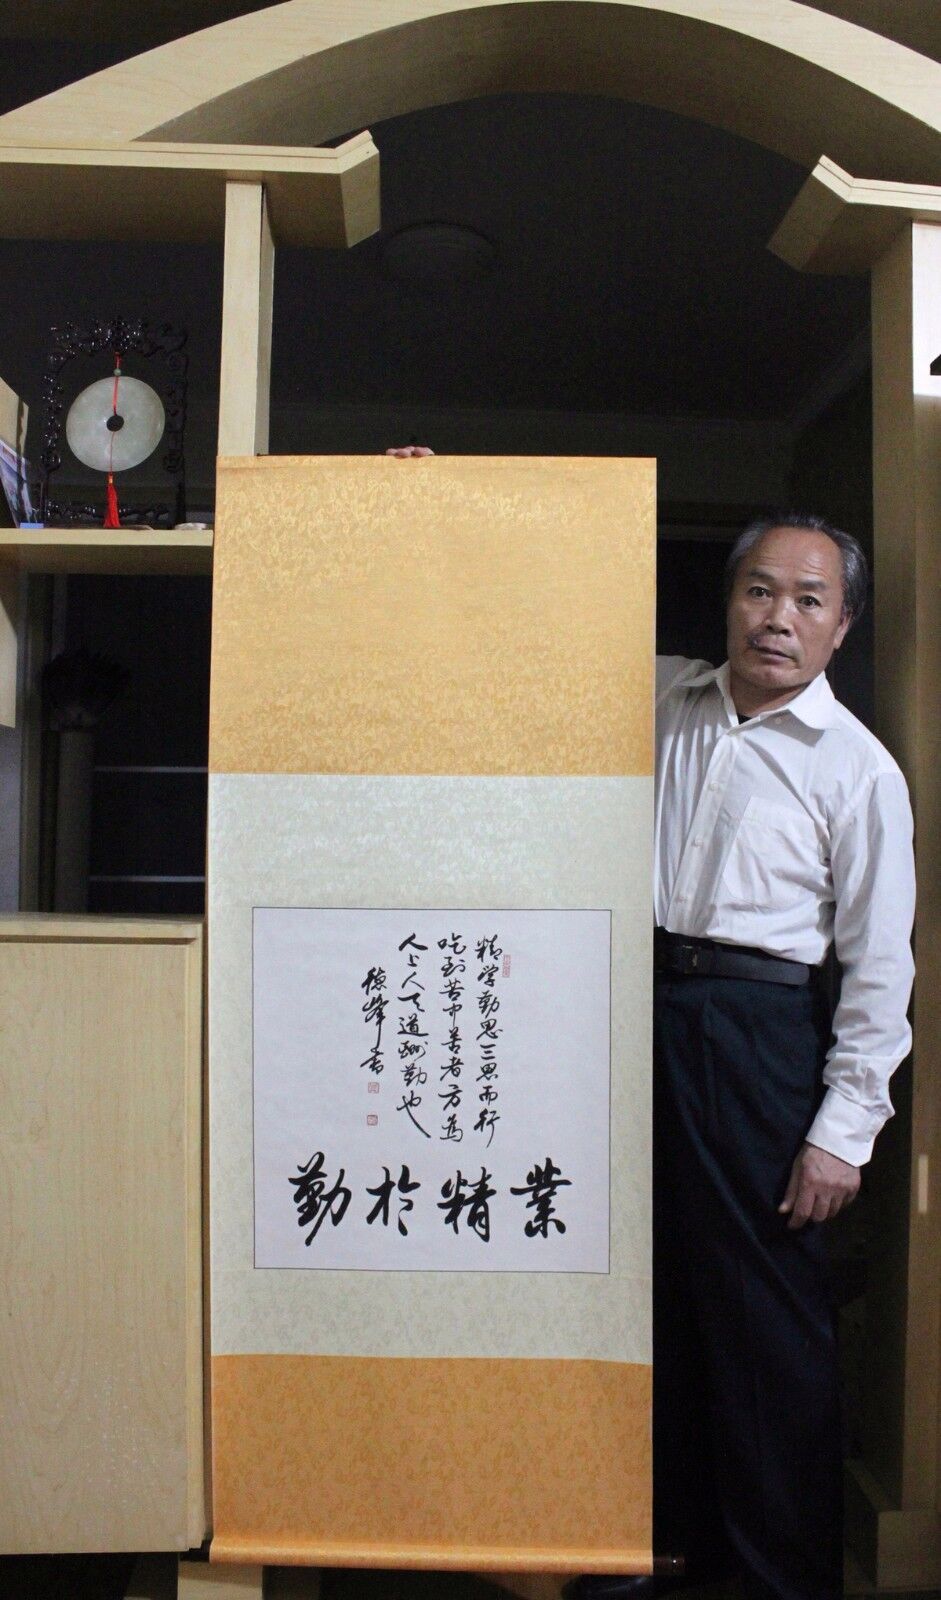 精学勤思三思而行
吃到苦中苦者方為
人上人天道酬勤也
德峰書
業精於勤